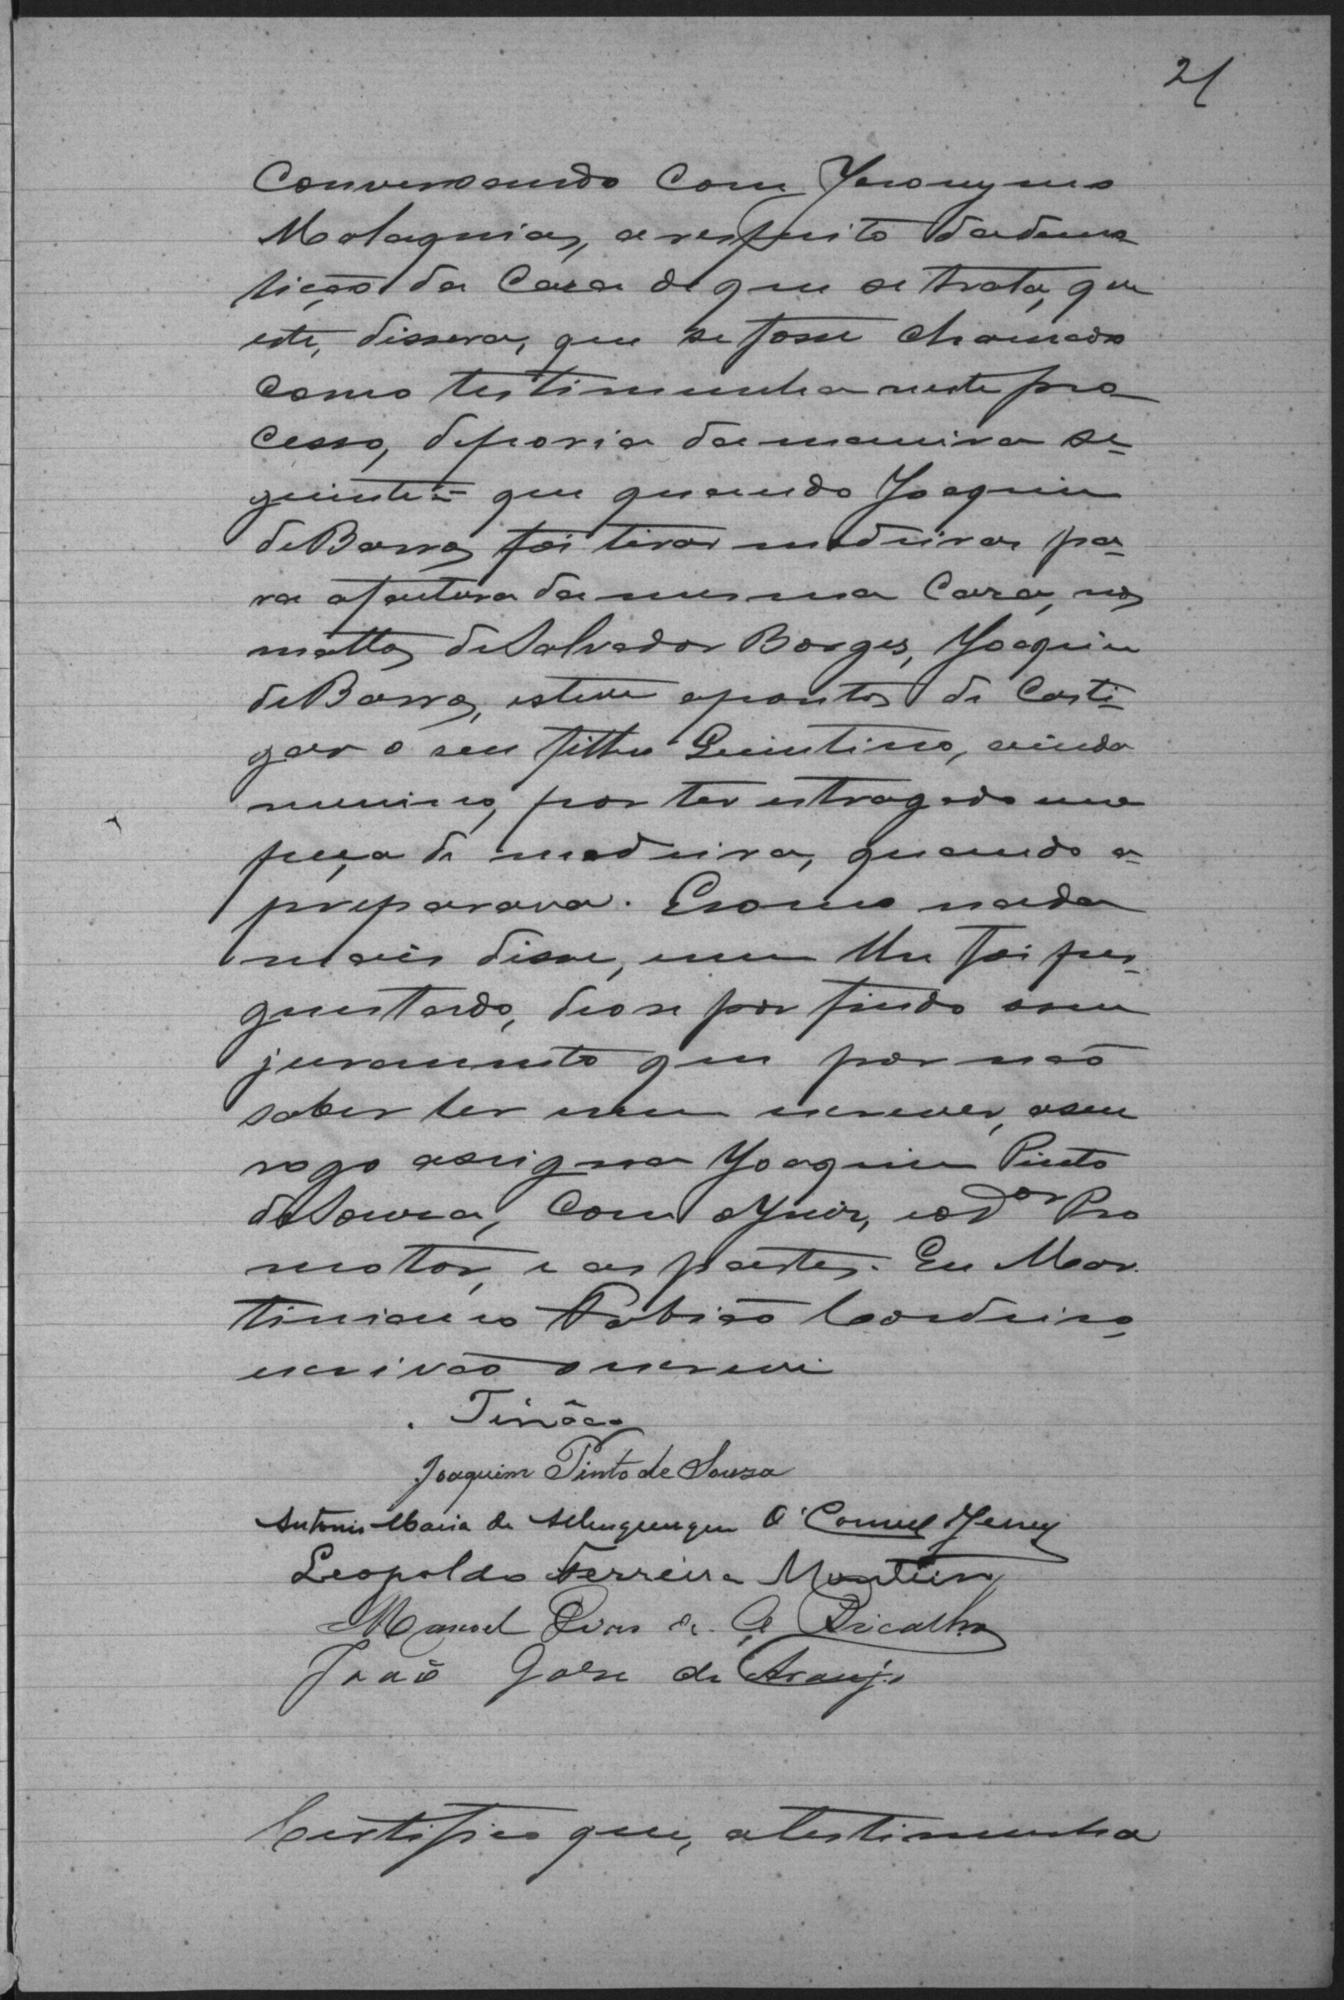 21
Conversando com Jeronymo
Malaquias, a respeito da demo
lição da Casa de que se trata, que
este, dissera, que se fosse chamado
como testimunha neste pro
cesso, deporia da maneira se-
guinte:- que quando Joaquim
de Barros foi tirar madeiras pa-
ra afactura da mesma Casa, nos
mattos de Salvador Borges, Joaquim
de Barros, esteve apontos de Casti-
gar o seu filho Quintino, ainda
menino, por ter estragado uma
peça de madeira, quando a
preparava. E como nada
mais disse, nem lhe foi per-
guntado, deo se por findo o seu
juramento que por não
saber ler nem escrever, a seu
rogo assigna Joaquim Pinto
de Souza, com o Juiz, e o Dor Pro
motor, e as partes. Eu Mar
tiniano Fabião Cordeiro,
escrivão o escrevi
Tinôco
Joaquim Pinto de Souza
Antonio Maria de Albuquerque O' Connel Jersey
Leopoldo Ferreira Monteiro
Manoel Dias de A. Bicalho
João Galse de Araujo
Certifico que, a testimunha